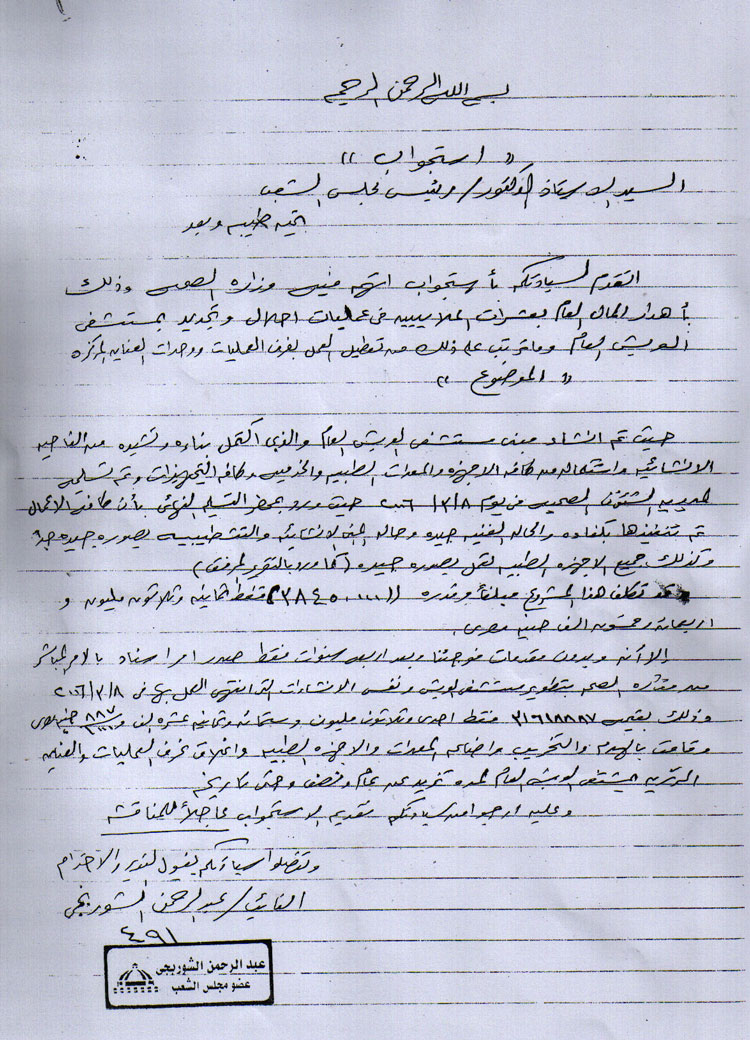 بسم الله الرحمن الرحيم
" استجواب "
السيد الاستاذ الدكتور / رئيس مجلس الشعب
تحيه طيبه وبعد
اتقدم لسيادتكم بأستجواب اتهم فيه وزاره الصحه وذلك
بأهدار المال العام بعشرات الملايين فى عمليات احلال وتجديد بمستشفى
العريش العام وما ترتب على ذلك من تعطيل العمل بغرف العمليات ووحدات العنايه المركزه
" الموضوع "
حيث تم انشاء مبنى مستشفى العريش العام والذى اكتمل بناءه وتشيده من الناحيه
الانشائيه واستكماله من كافه الاجهزه والمعدات الطبيه والخدميه وكافه التجهيزات وتم تسليمه
لمديريه الشئون الصحيه فى يوم ٢٠٠٦/٣/٨ حيث ورد بمحضر التسليم النهائى بأن كافة الاعمال
تم تنفيذها بكفاءه والحاله الفنيه جيده وحاله المبنى الانشائيه والتشطيبيه بصوره جيده جدا
وكذلك جميع الاجهزه الطبيه تعمل بصوره جيده ( كما ورد بالتقرير المرفق )
وقد تكلف هذا المشروع مبلغاً وقدره (٣٨٤٥٠٠٠٠) فقط ثمانيه وثلاثون مليون و
اربعمائة وخمسون الف جنيه مصرى.
إلا أنه وبدون مقدمات فوجئنا وبعد اربعه سنوات فقط صدر امر اسناد بالامر المباشر
من وزاره الصحه بتطوير مستشفى العريش ونفس الانشاءات التى انتهى العمل بها فى ٢٠٠٦/٣/٨
وذلك بقيمه ٣١٦١٨٨٨٧ فقط احدى وثلاثون مليون وستمائه وثمانيه عشره الف و ٨٨٧/١٠٠٠ جنيه مصرى
وقامت بالهدم والتخريب واضاعه المعدات والاجهزه الطبيه واغلاق غرف العمليات والعنايه
المركزيه بمستشفى العريش العام لمده تزيد عن عام ونصف وحتى تاريخه
وعليه ارجو من سيادتكم تقديم الاستجواب عاجلاً للمناقشه
وتفضلوا سيادتكم بقبول التقدير والاحترام
النائب / عبد الرحمن الشوربجى
٤٩١
عبد الرحمن الشوربجى
عضو مجلس الشعب